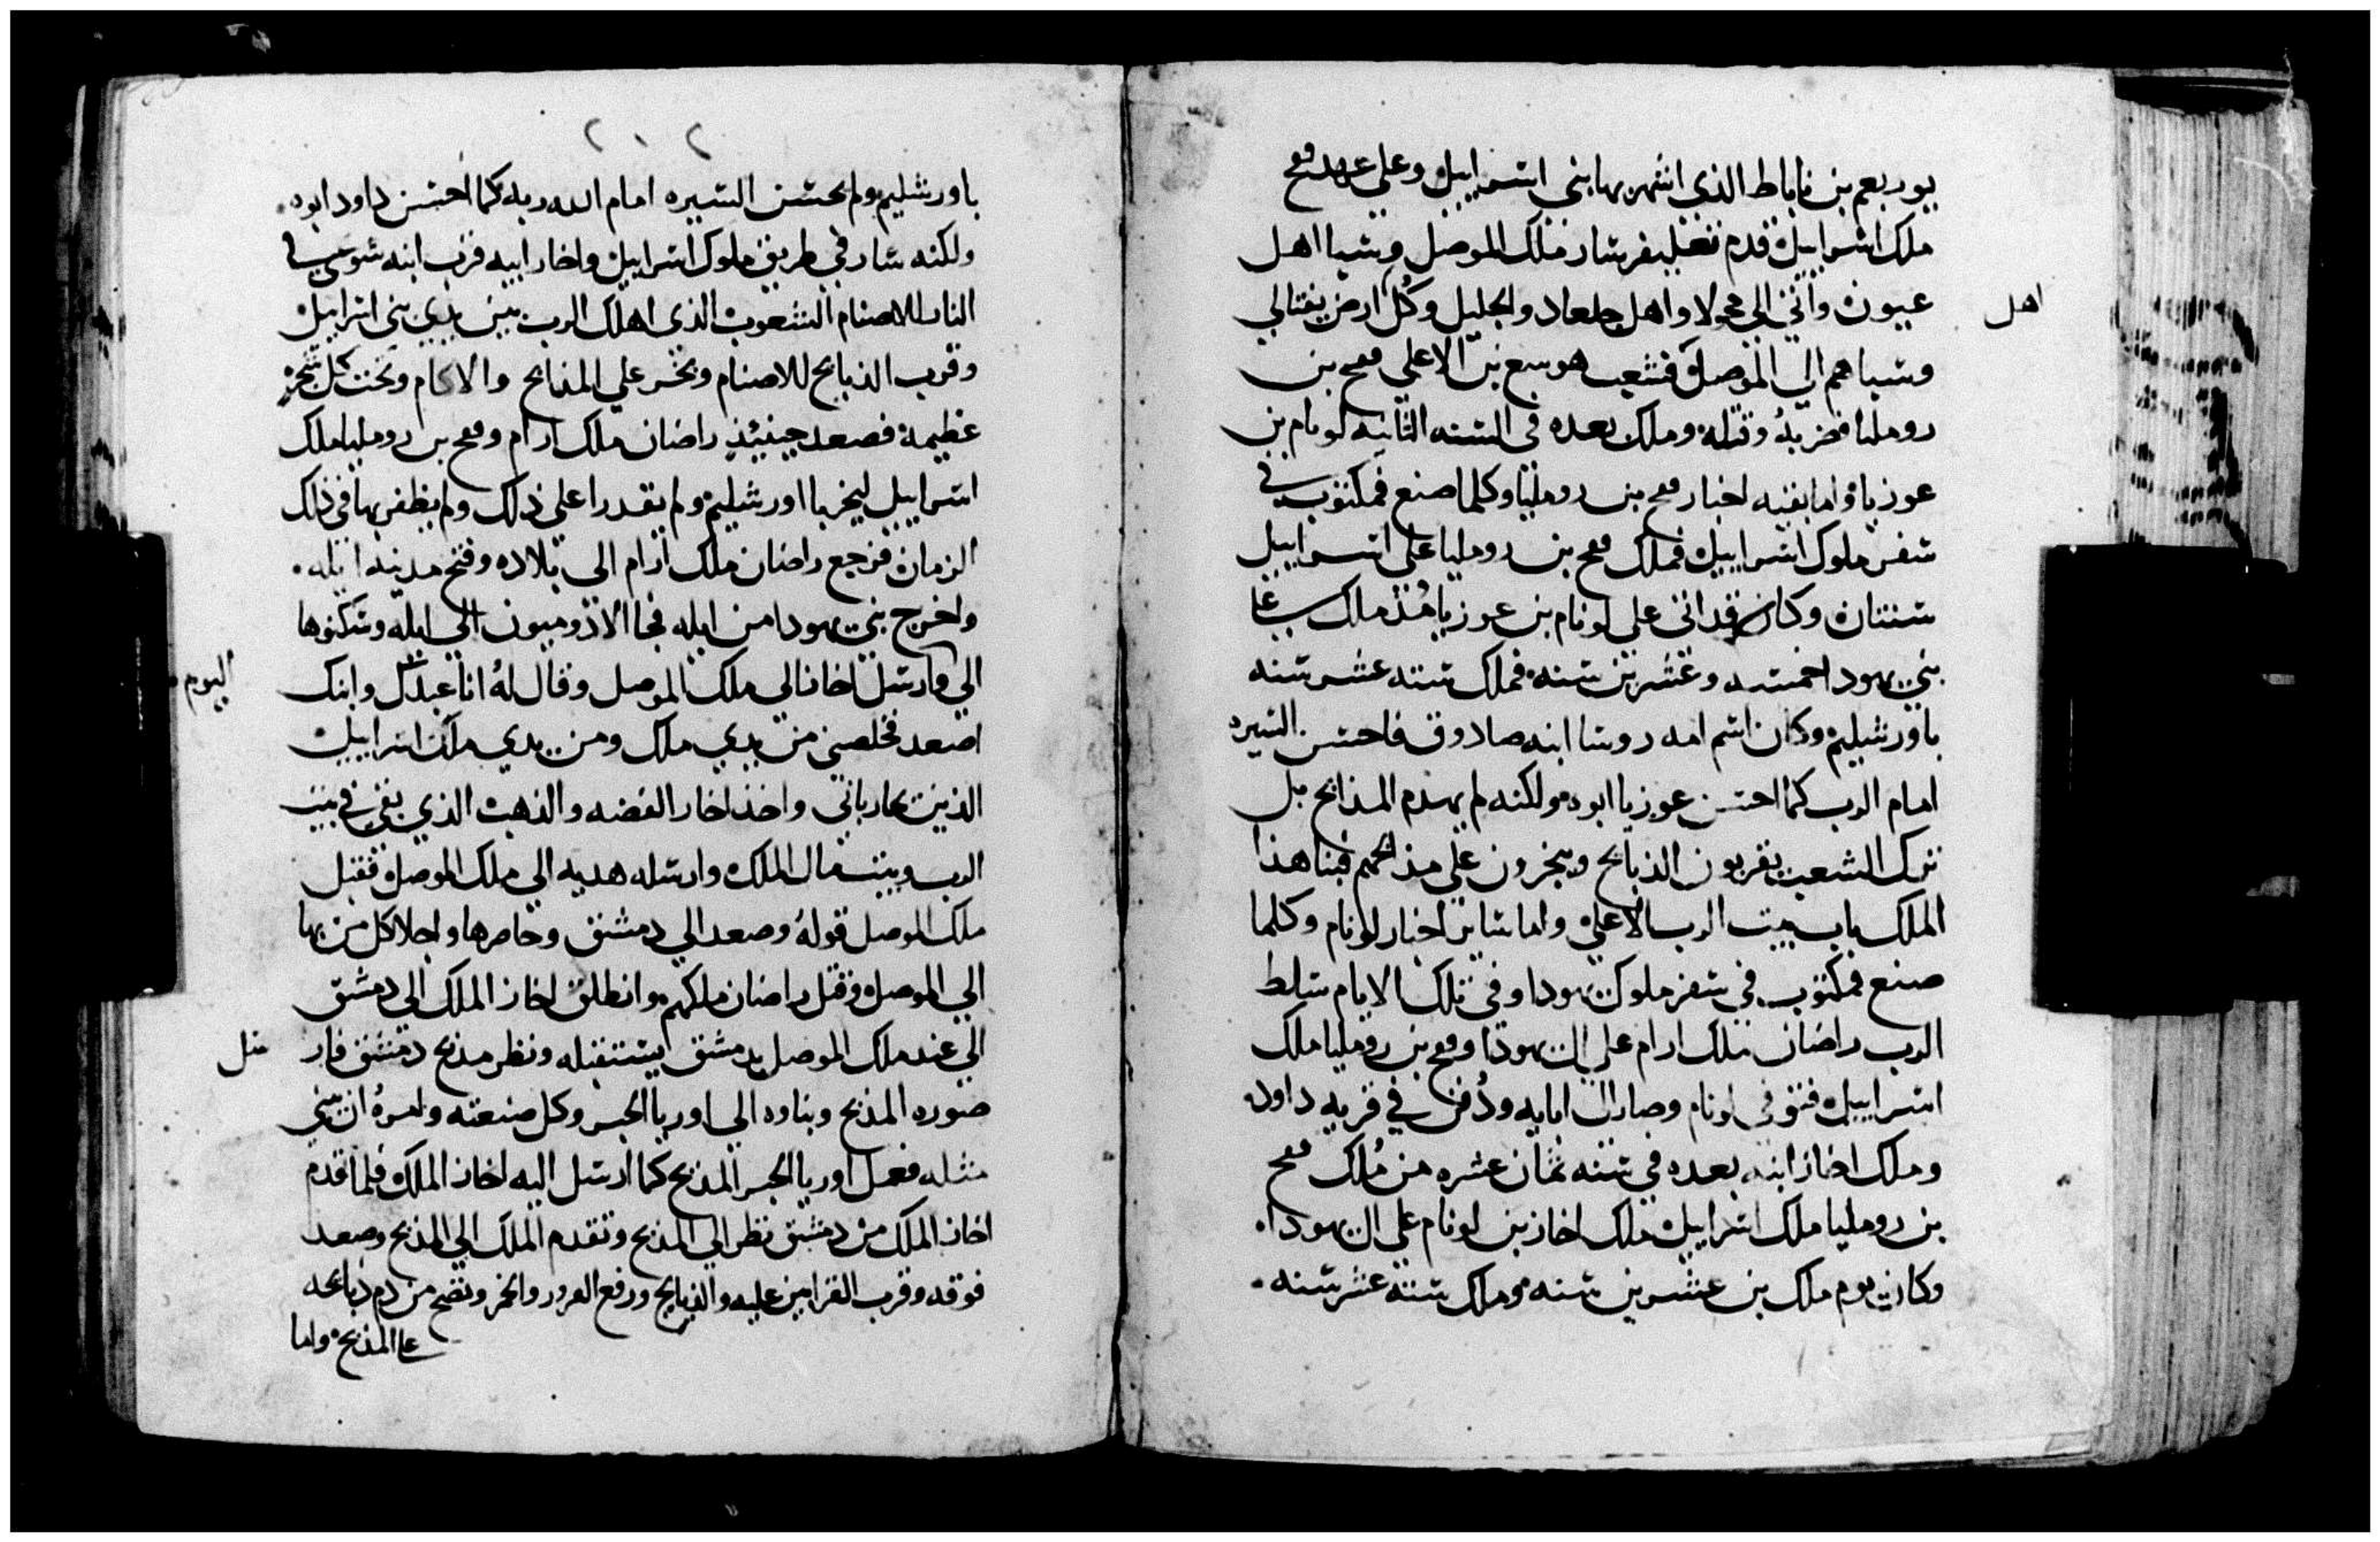 يوربعم بن ناباط الذي اشهر بها بني اسراييل وعلي عهد فقح
ملك اسراييل قدم تغليفرسار ملك الموصل وسبا اهل
عيون واتي الي محولا واهل جلعاد والجليل وكل ارض نفتالي
اهل
وسباهم الي الموصل فشعب هوسع بن الاعلي فقح بن
رومليا فضربه وقتله وملك بعده في السنه الثانيه لونام بن
عوزيا واما بقيه اخبار فقح بن رومليا وكلما صنع فمكتوب في
سفر ملوك اسراييل فملك فقح بن رومليا علي اسراييل
سنتان وكان قد اتي علي لونام بن عوزيا مذ ملك علي
بني يهودا خمسه وعشرين سنه فملك سته عشر سنه
باورشليم وكان اسم امه روسا ابنه صادوق فاحسن السيره
امام الرب كما احسن عوزيا ابوه ولكنه لم يهدم المذابح بل
ترك الشعب يقربون الذبايح ويبخرون علي مذابحهم فبنا هذا
الملك باب بيت الرب الاعلي واما ساير اخبار لونام وكلما
صنع فمكتوب في سفر ملوك يهودا وفي تلك الايام سلط
الرب راضان ملك ارام علي ال يهودا وفقح بن رومليا ملك
اسراييل فتوفي لونام وصار الي ابايه ودُفن في قريه داود
وملك اخاز ابنه بعده في سنه ثمان عشره من مُلك فقح
بن رومليا ملك اسراييل ملك اخاز بن لونام علي ال يهودا
وكان يوم ملك بن عشرين سنه وملك سته عشر سنه
٢٠٢
باورشليم ولم يحسن السيره امام الله ربه كما احسن داود ابوه
ولكنه سار في طريق ملوك اسراييل واخاز ابيه قرب ابنه في
النار للاصنام الشعوب الذي اهلك الرب بين يدي بني اسراييل
وقرب الذبايح للاصنام وبخر علي المذابح والاكام وتحت كل شجره
عظيمه فصعد حينيذ راضان ملك ارام وفقح بن رومليا ملك
اسراييل ليخربا اورشليم ولم يقدرا علي ذلك ولم يظفر بها في ذلك
الزمان فرجع راضان ملك ارام الي بلاده وفتح مدينه ايله
واخرج بني يهودا من ايله فجا الادوميون الي ايله وسكنوها
الي وارسل اخاز الي ملك الموصل وقال لهُ انا عبدك وابنك
اليوم
اصعد فخلصني من يدي ملك ومن يدي ملك اسراييل
الذين حارباني واخذ اخاز الفضه والذهب الذي بقي في بيت
الرب وبيت مال الملك وارسله هديه الي ملك الموصل فقبل
ملك الموصل قولهُ وصعد الي دمشق وحاصرها واجلا كل من بها
الي الموصل وقتل راضان ملكهم وانطلق اخاز الملك الي دمشق
الي عند ملك الموصل بدمشق ليستقبله ونظر مذبح دمشق فار
سل
صوره المذبح وبناوه الي اوريا الحبر وكل صنعته وامرهُ ان يبني
مثله ففعل اوريا الحبر المذبح كما ارسل اليه اخاز الملك فلما قدم
اخاز الملك من دمشق نظر الي المذبح وتقدم الملك الي المذبح وصعد
فوقه وقرب القرابين عليه والذبايح ورفع البرور والخمر ونضح من دم ذبايحه
علي المذبح واما